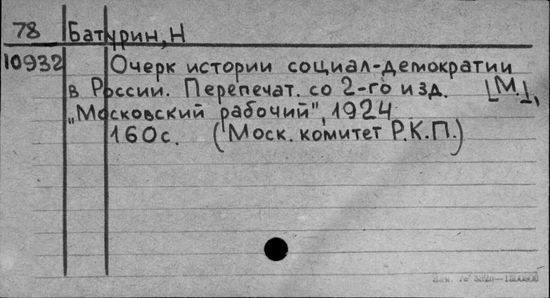 78 Батурин, Н
10932 Очерк истории социал-демократии
в России. Перепечат. со 2-го изд. [М.],
„Московский рабочий", 1924
160с. (Моск. комитет Р.К.П.)